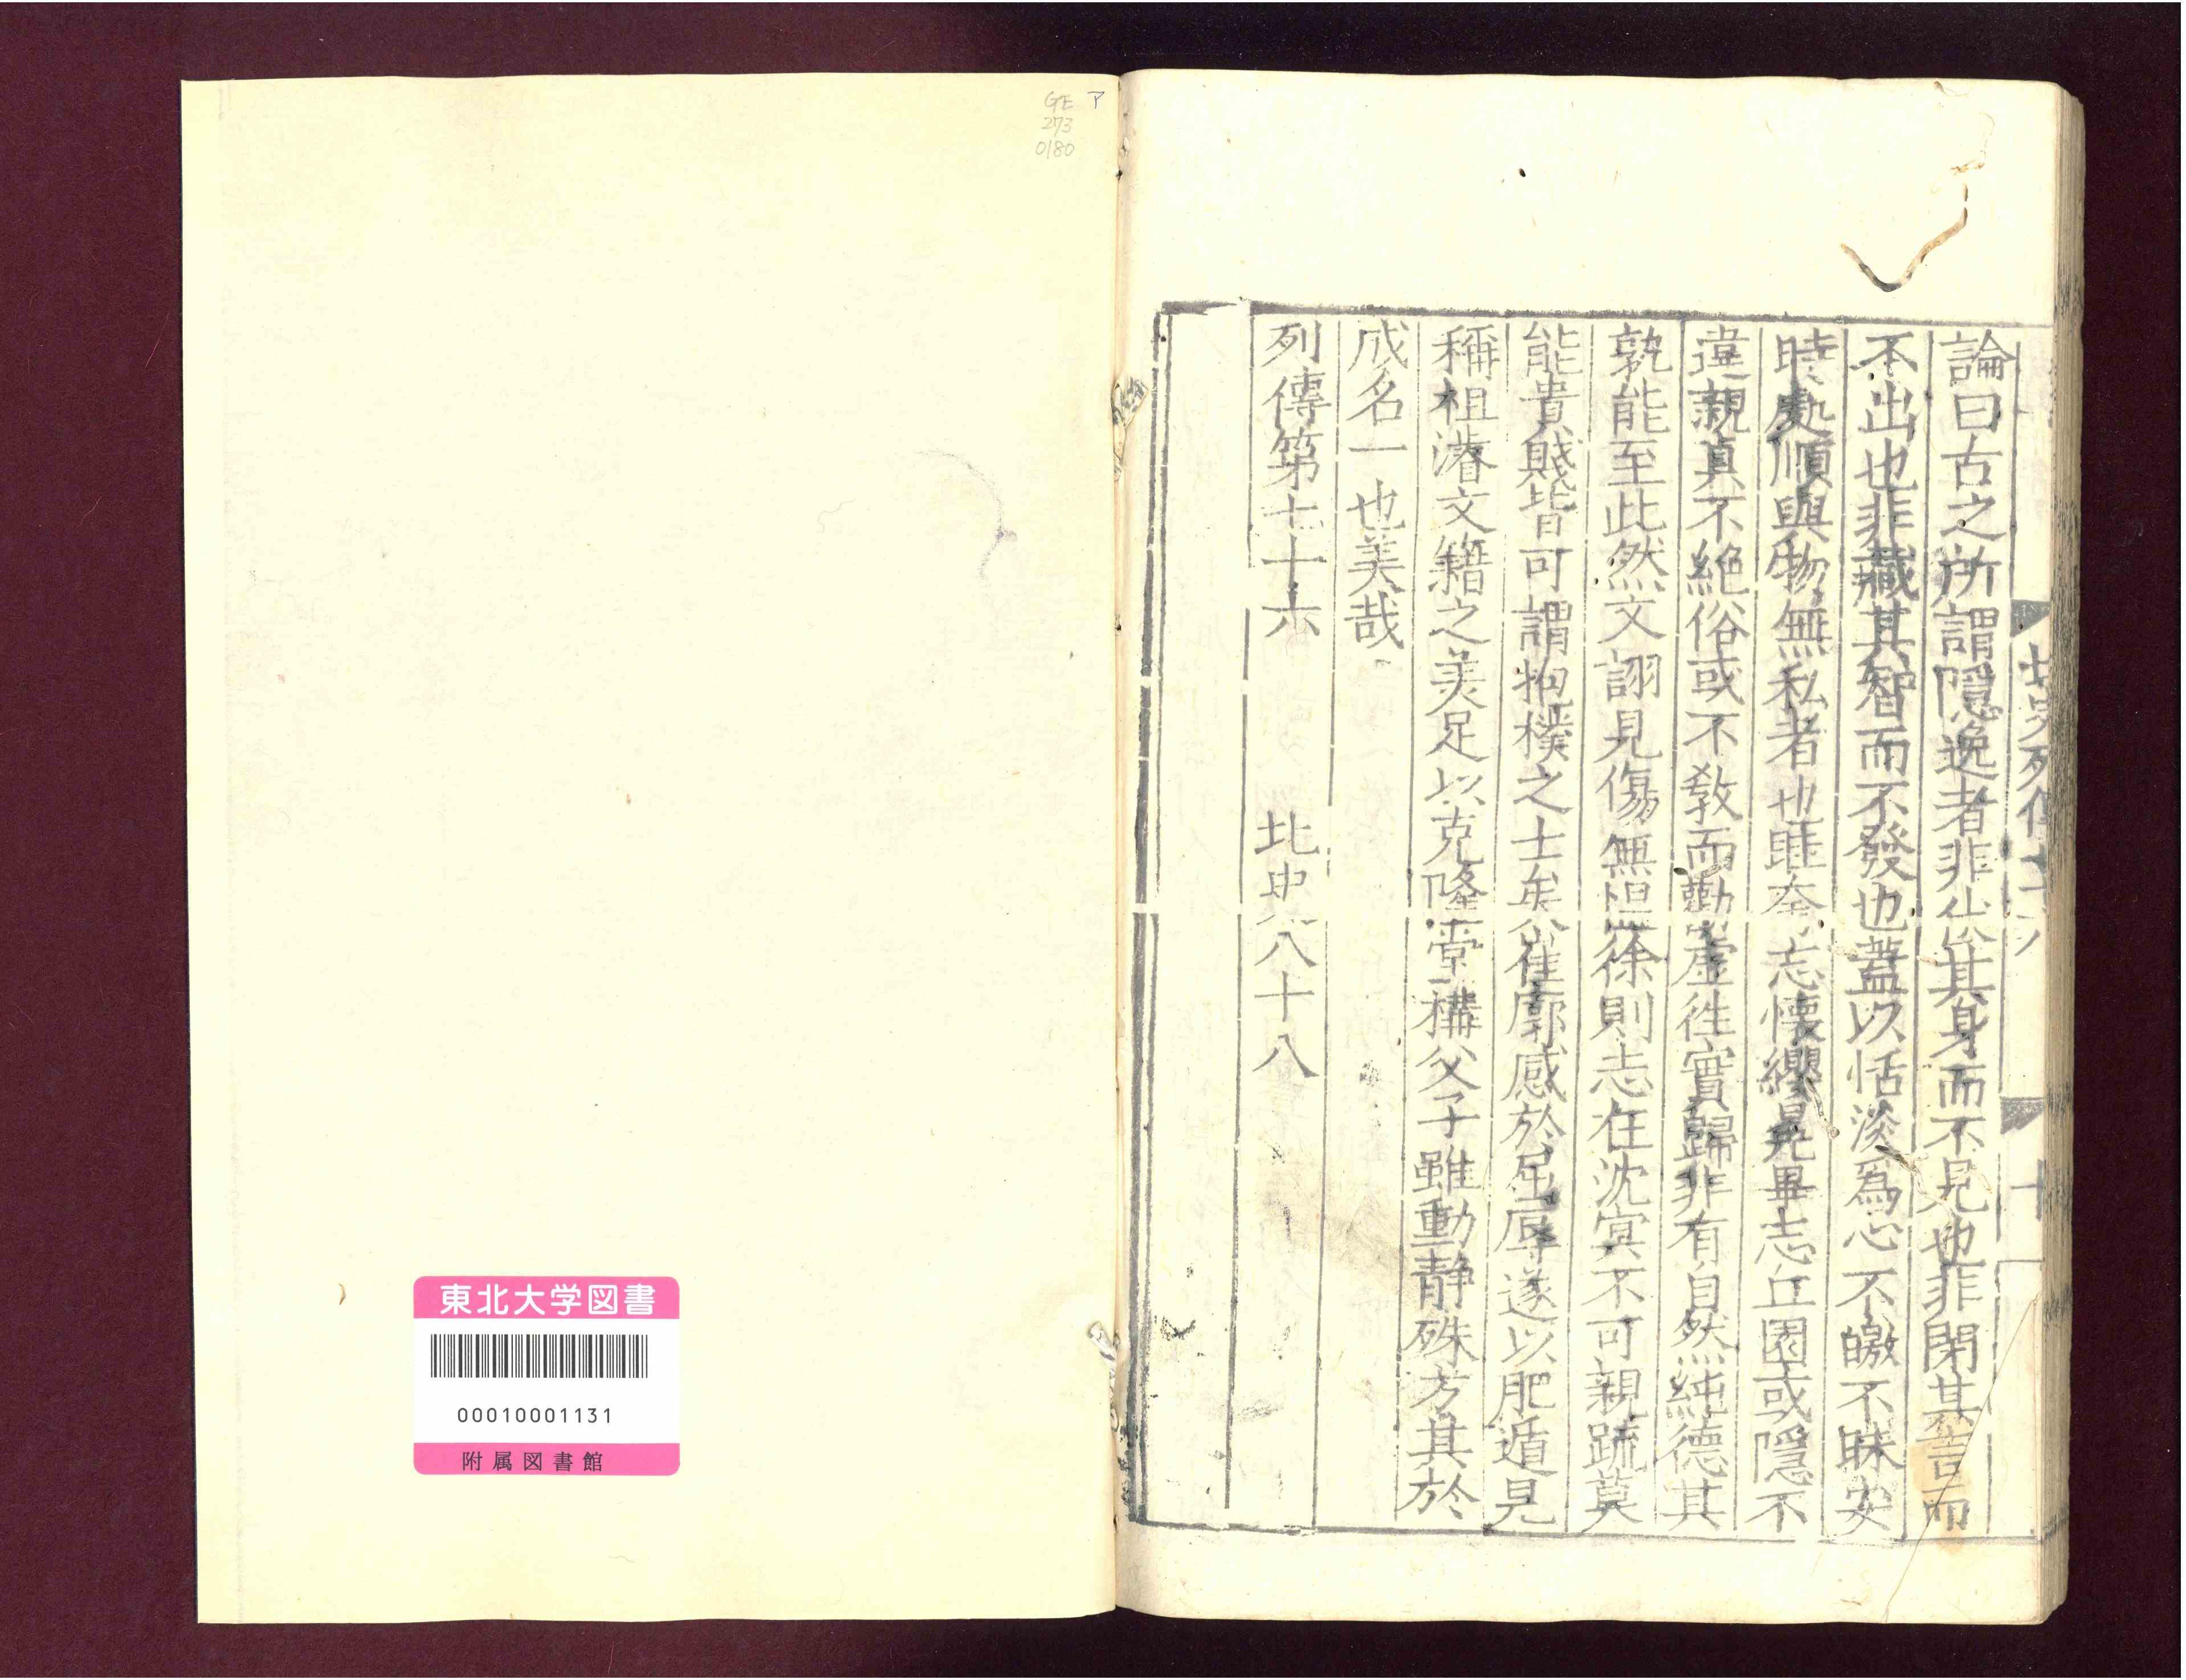 北史列傳七十六
十
論曰古之所謂隱逸者非伏其身而不見也非閉其言而
不出也非藏其智而不發也蓋以恬淡爲心不皦不昧安
時處順與物無私者也眭夸忘懷纓冕畢志丘園或隱不
違親貞不絶俗或不敎而勸虛徃實歸非有自然純德其
孰能至此然文詡見傷無愠徐則志在沈冥不可親䟽莫
能貴賤皆可謂抱樸之士矣崔廓感於屈辱遂以肥遁見
稱祖濬文籍之美足以克隆堂構父子雖動静殊方其於
成名一也美哉
列傳第七十六 北史八十八
GE ア
273
0180
東北大学図書
00010001131
附属図書館